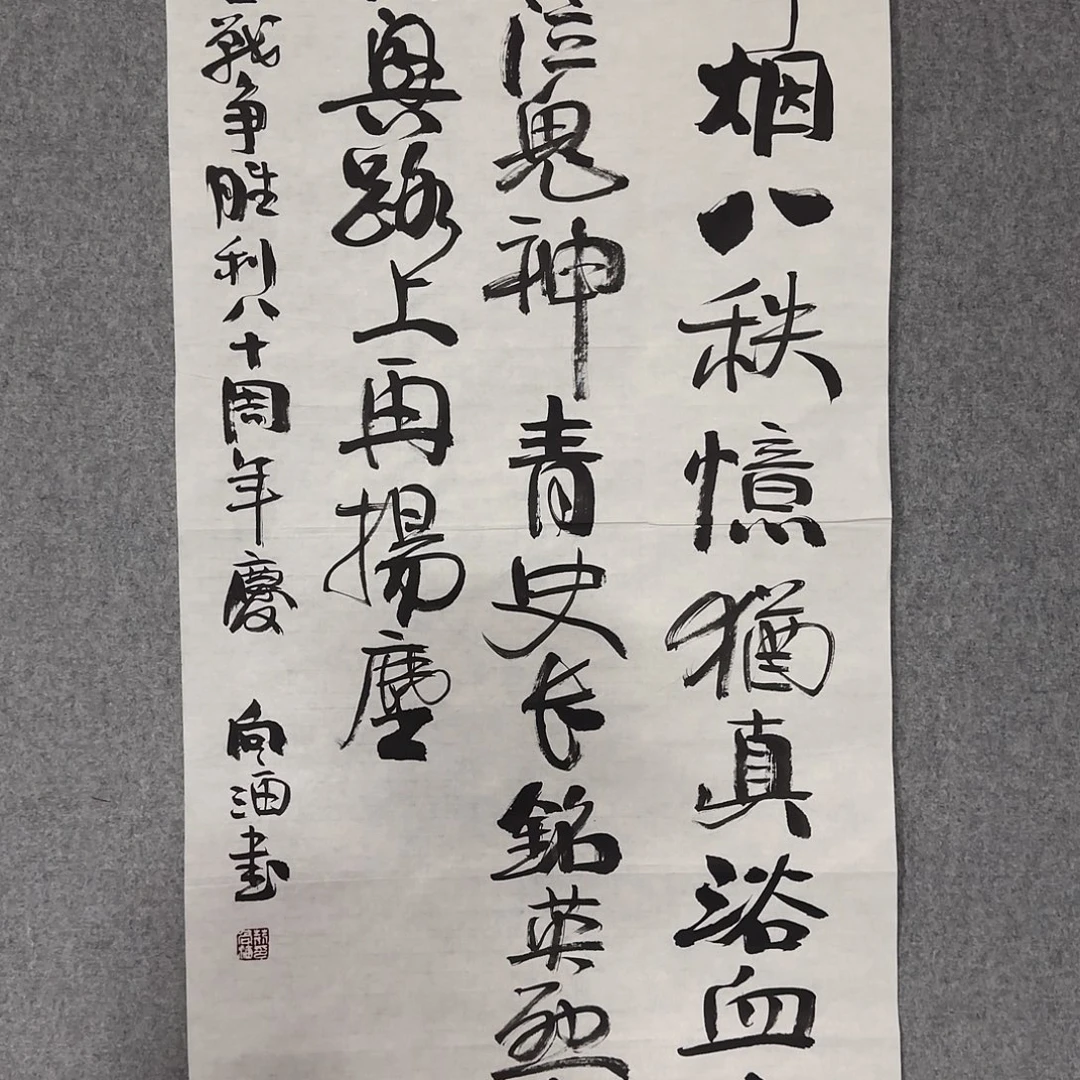 烟八秩憶猶真浴血
泣鬼神青史长銘英烈
興路上再揚塵
戰争胜利八十周年慶
向洒书